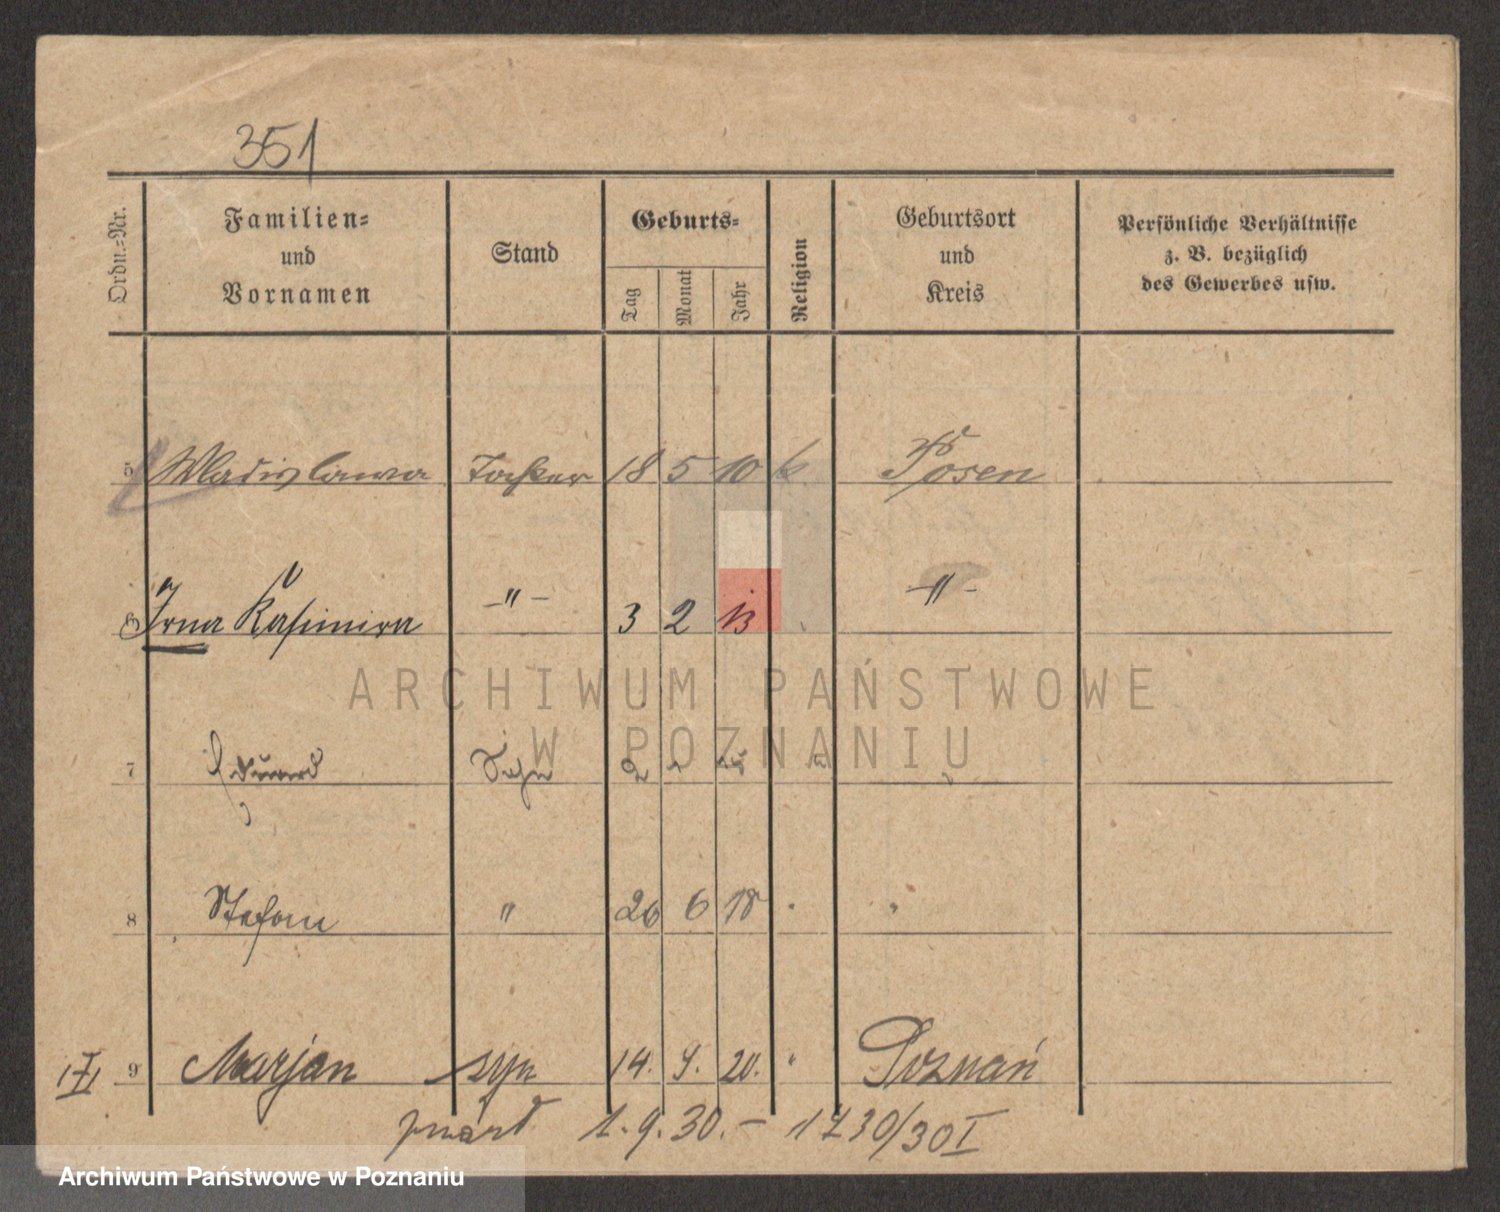 351
Ordn.=Nr.
Familien=
und
Vornamen
Stand
Geburts=
Tag
Monat
Jahr
Religion
Geburtsort
und
Kreis
Persönliche Verhältnisse
z. B. bezüglich
des Gewerbes usw.
5 Wladislawa Tochter 18 5 10 k Posen
6 Irna Kasimira -"- 3 2 13 -"-
ARCHIWUM PAŃSTWOWE
W POZNANIU
7 Eduard Sohn 2
8 Stefan " 26 6 18
9 Marjan syn 14. 9. 20. " Poznań
zmarł 1.9.30.- 1730/30 I
Archiwum Państwowe w Poznaniu